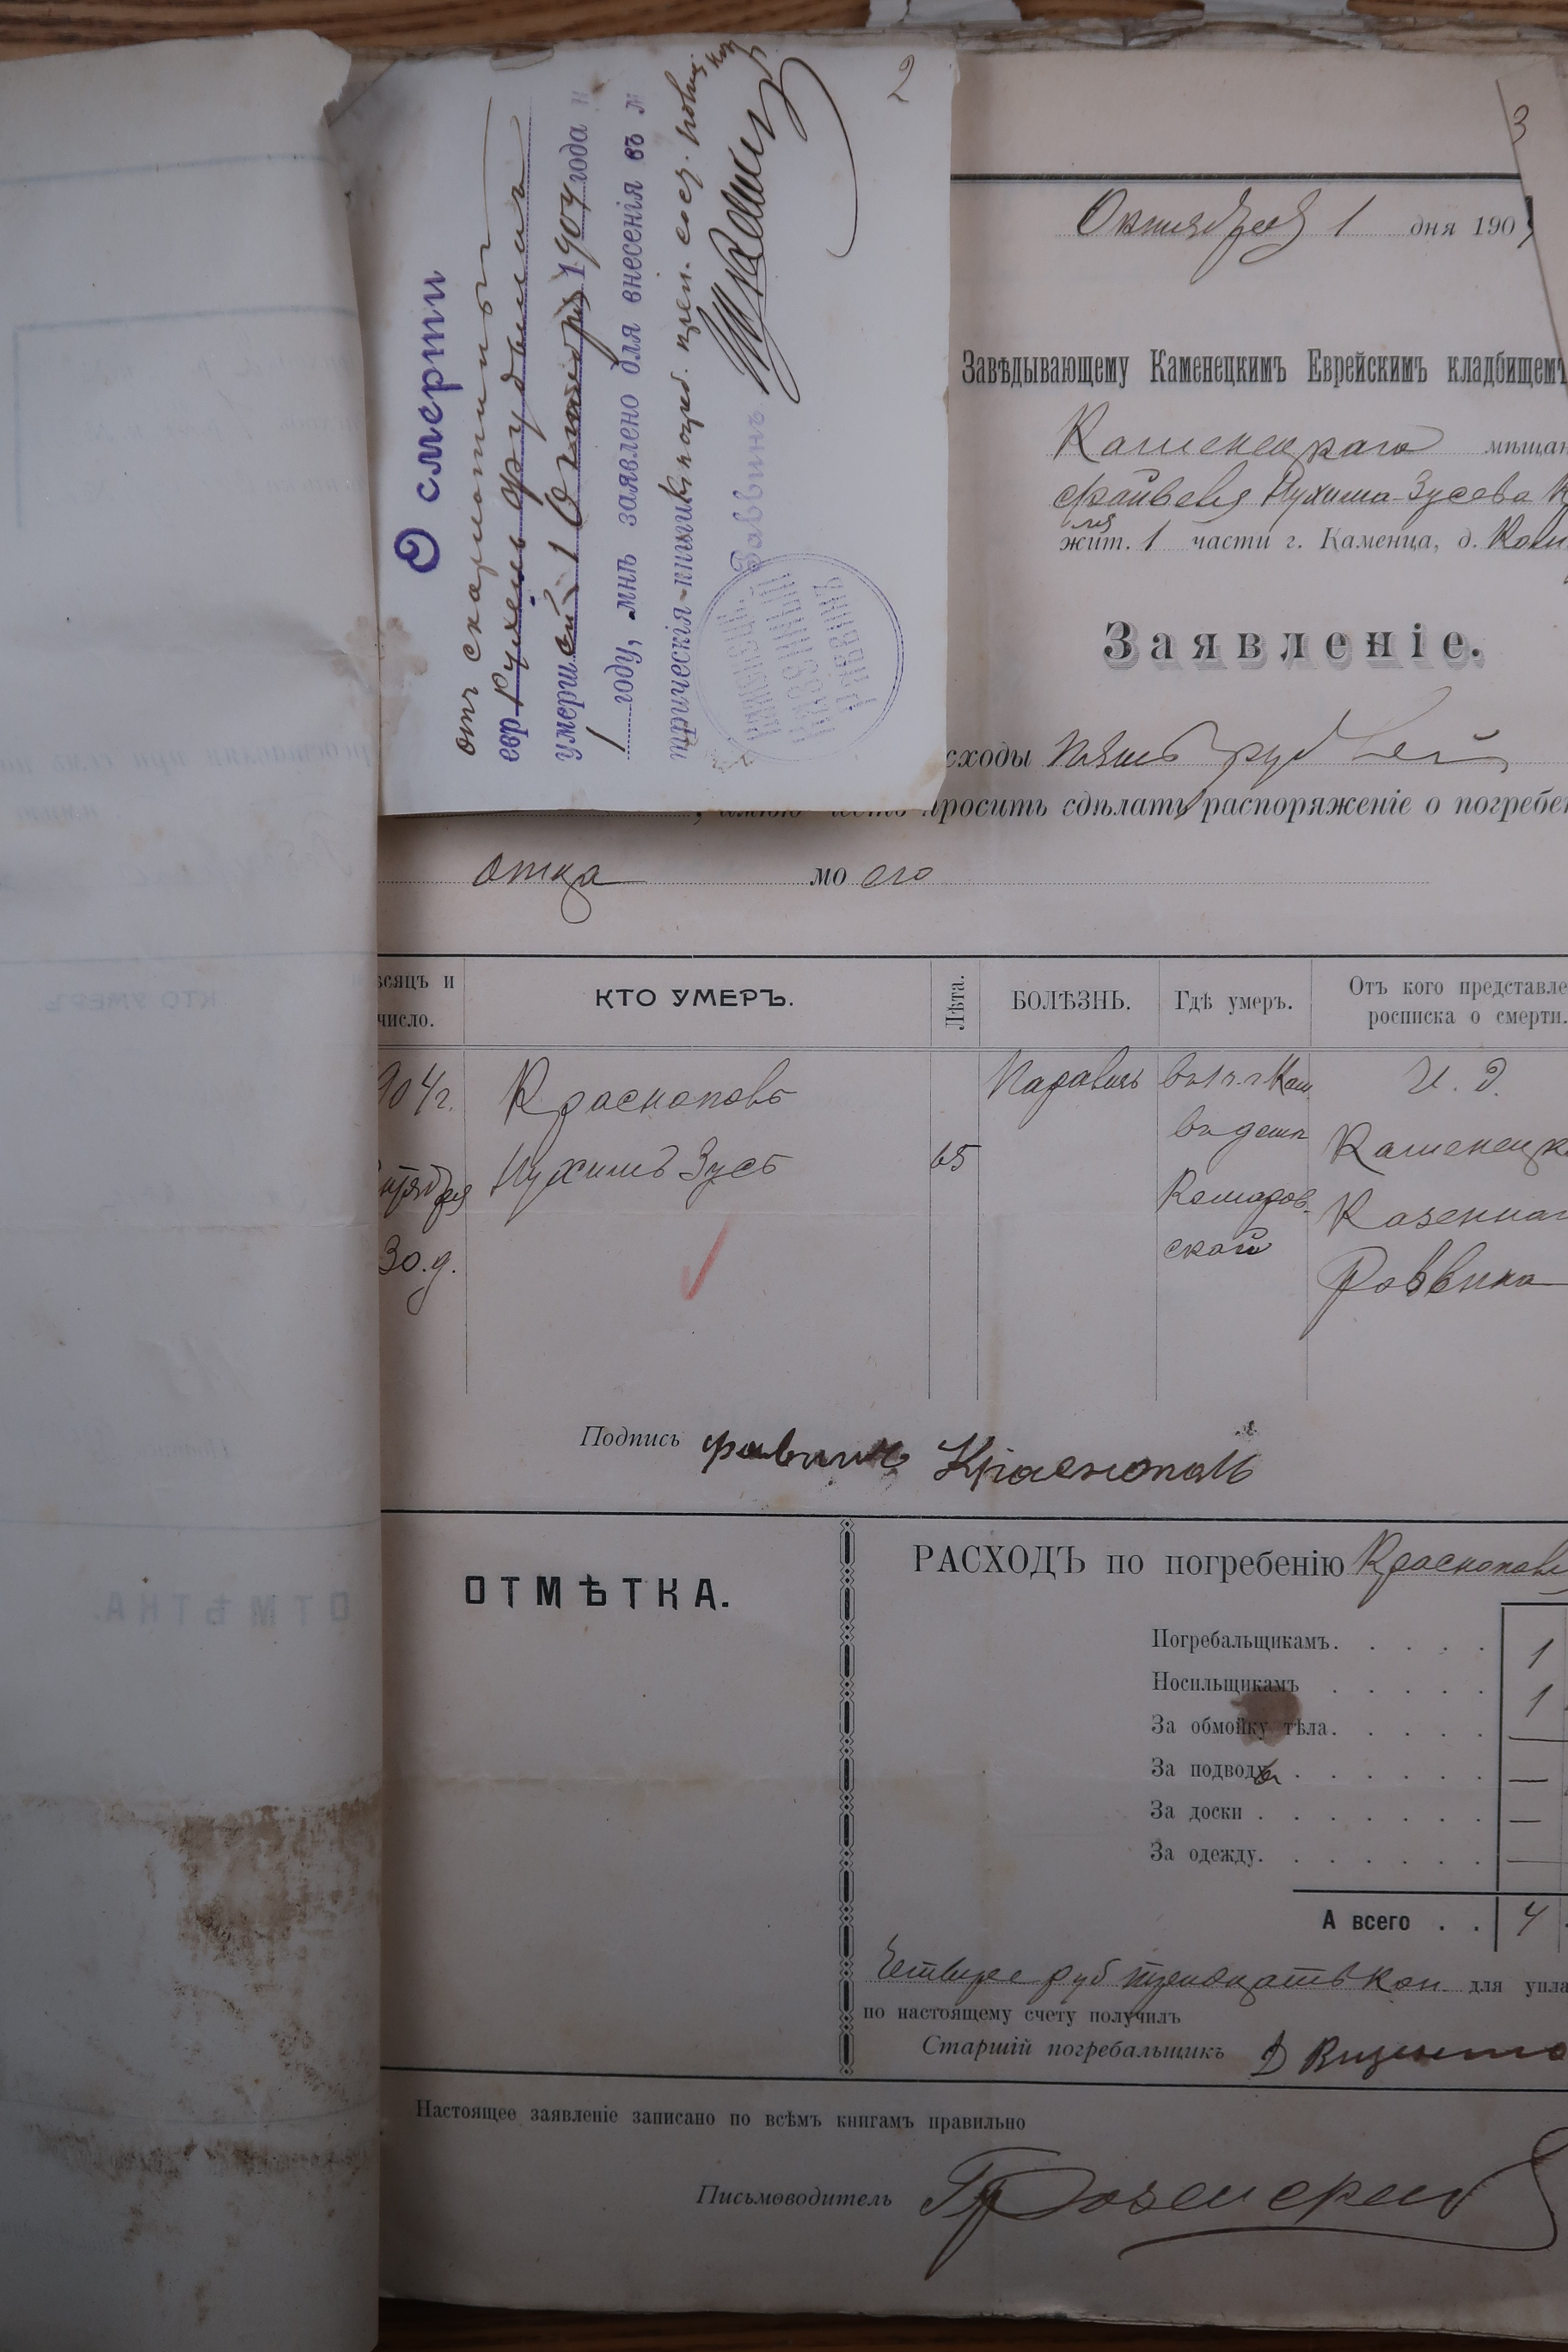 2
О смерти
отъ скарлатины
евр Рухель Фудыманъ
умершей 1 Октября 1904 года
году, мнѣ заявлено для внесенія въ
трическія книги
Раввинъ
КАЗЕННЫЙ
РАВВИНЪ
3
Октября 1 дня 190
Завѣдывающему Каменецкимъ Еврейскимъ кладбищемъ
Каменецкаго мѣщан
Файвеля Нухима-Зусева
жит. 1 части г. Каменца, д.
Заявленіе.
сходы Пять рублей
просить сдѣлать распоряженіе о погребен
отца моего
ѣсяцъ и число.
КТО УМЕРЪ.
Лѣта.
БОЛѢЗНЬ.
Гдѣ умеръ.
Отъ кого представле
росписка о смерти.
904г.
Краснополь
Нухимъ Зусь
30.д.
65
Параличъ
въ 1 ч. г Кам
въ домѣ
Комаров-
ской
И. д.
Каменецк
Казеннаг
Раввина
Подпись Файвишъ Краснополь
ОТМѢТКА.
РАСХОДЪ по погребенію Краснополь
Погребальщикамъ. 1
Носильщикамъ 1
За обмойку тѣла. —
За подводы —
За доски —
За одежду. —
А всего 4
Четыре руб тридцать коп для упла
по настоящему счету получилъ
Старшій погребальщикъ
Настоящее заявленіе записано по всѣмъ книгамъ правильно
Письмоводитель
КТО УМЕРЪ
ОТМѢТКА.